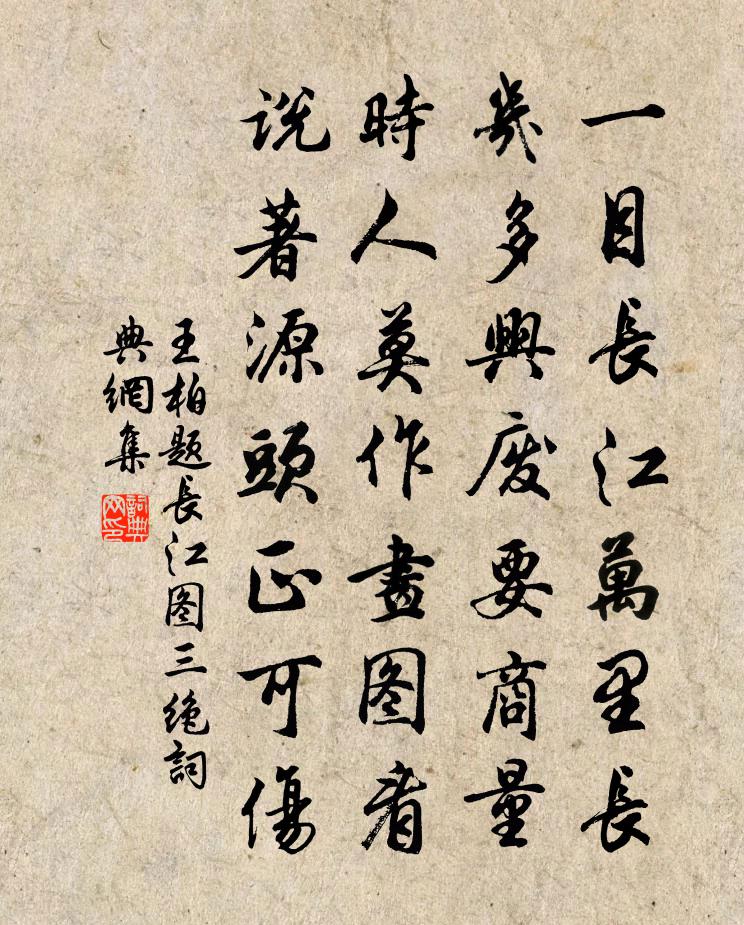 一目長江萬里長
幾多興廢要商量
時人莫作畫图看
説著源頭正可傷
王柏題長江图三绝詞
典網集
詞典网印